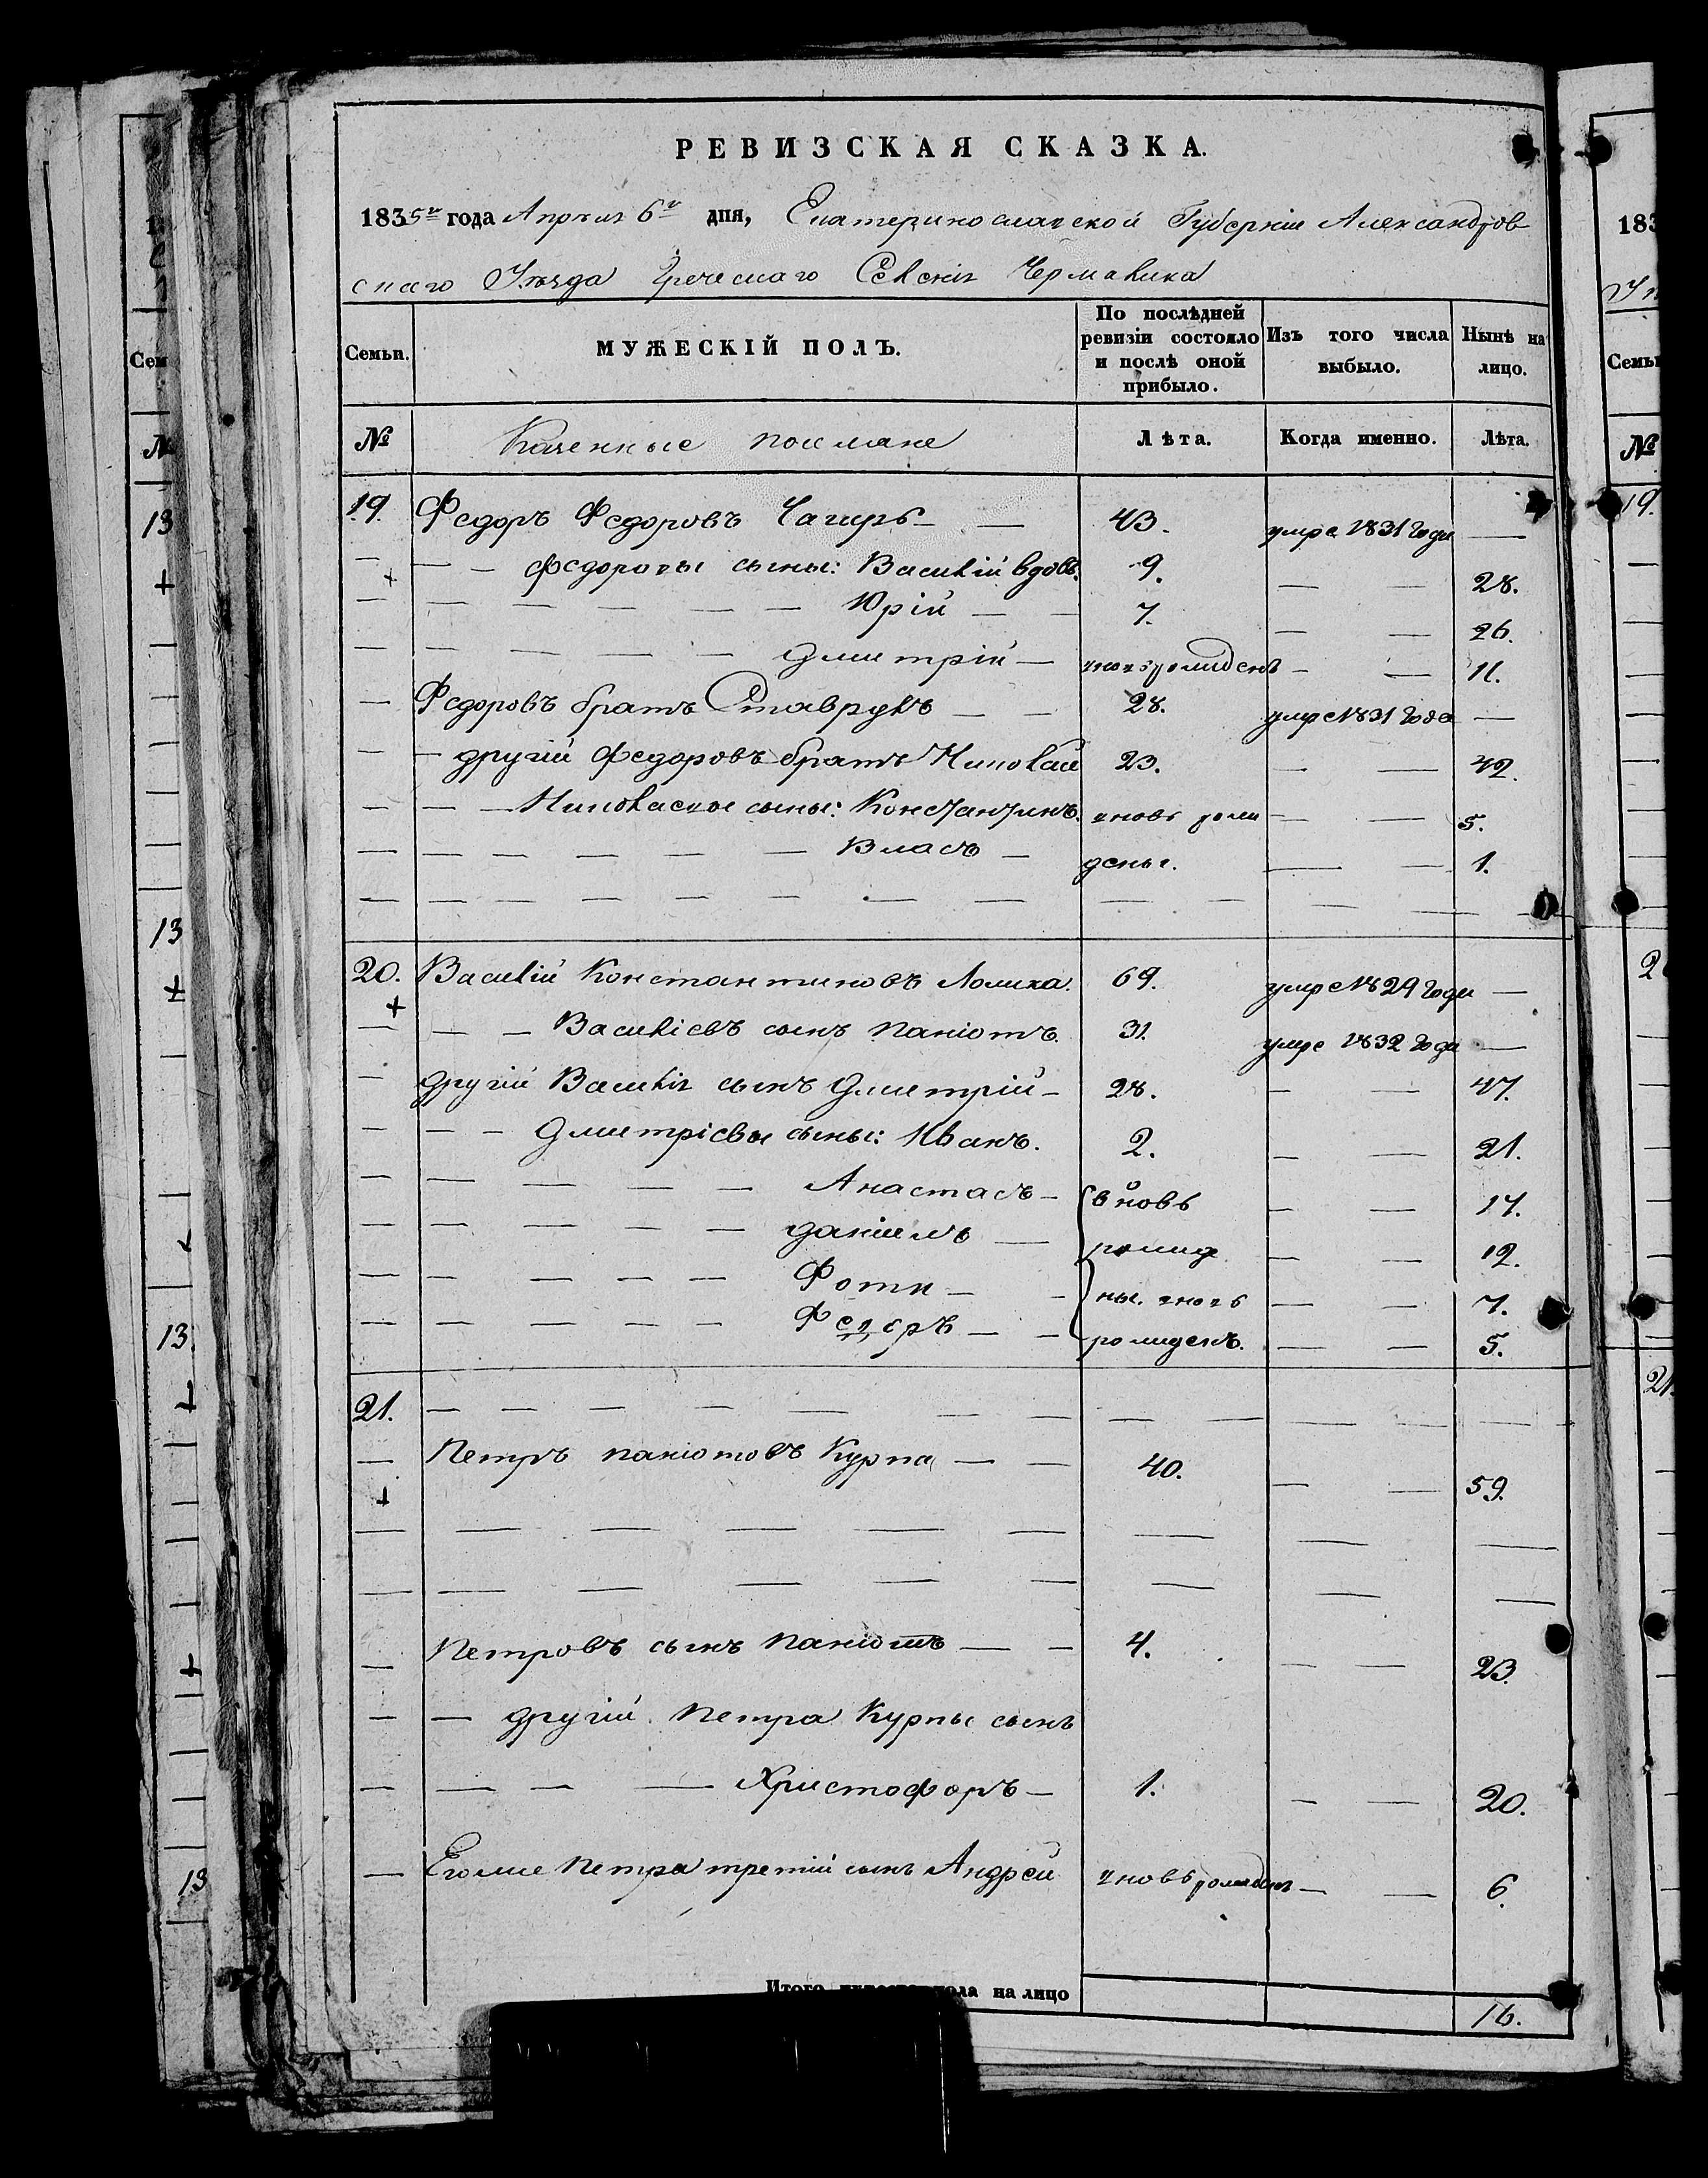 РЕВИЗСКАЯ СКАЗКА.
1835го года Апрѣля 6го дня, Екатеринославской Губерніи Александров
скаго Уѣзда Греческаго Селенія Чермалика
Семьи. МУЖЕСКІЙ ПОЛЪ. По послѣдней ревизіи состояло и послѣ оной прибыло. Изъ того числа выбыло. Нынѣ на лицо.
№ Казенные поселяне Лѣта. Когда именно. Лѣта.
19. Федоръ Федоровъ Чагиръ — — 43. умре 1831 Года —
— + — — Федоровы сыны: Василій вдовъ. 9. — — 28.
— — — — — — Юрій — — 7. — — 26.
— — — — — — Дмитрій — вновь рожденъ — — 11.
— Федоровъ братъ Ставрулъ — — 28. умре 1831 Года —
— — другій Федоровъ братъ Николай 23. — — 42.
— — — Николаевы сыны: Константинъ. вновь рож — — 5.
— — — — — — Власъ — дены. — — 1.
— — — — — — — — — — — — —
20. Василій Константиновъ Ломиха. 69. умре 1829 Года —
+ — — — Василіевъ сынъ Паніотъ. 31. умре 1832 Года —
— другій Василія сынъ Дмитрій — 28. — — 47.
— — — Дмитріевы сыны: Иванъ. 2. — — 21.
— — — — — Анастасъ — вновь — — 17.
— — — — — Даніилъ — рожд — — 12.
— — — — — Фоти — — ны. вновь — — 7.
— — — — — Федоръ — — рожденъ. — — 5.
21. — — — — — — — — — — — —
— Петръ Паніотовъ Курпа — — 40. — — 59.
+
— — — — — — — — —
— — — — — — — — —
— Петровъ сынъ Паніотъ — — 4. — — 23.
— — другій Петра Курпы сынъ
— — — — Христофоръ — 1. — — 20.
— Егоже Петра третій сынъ Андрей вновь рожденъ — — 6.
Итого на лицо 16.
13
+
13
+
13
+
+
13
183
Семьи
№
19.
2
21